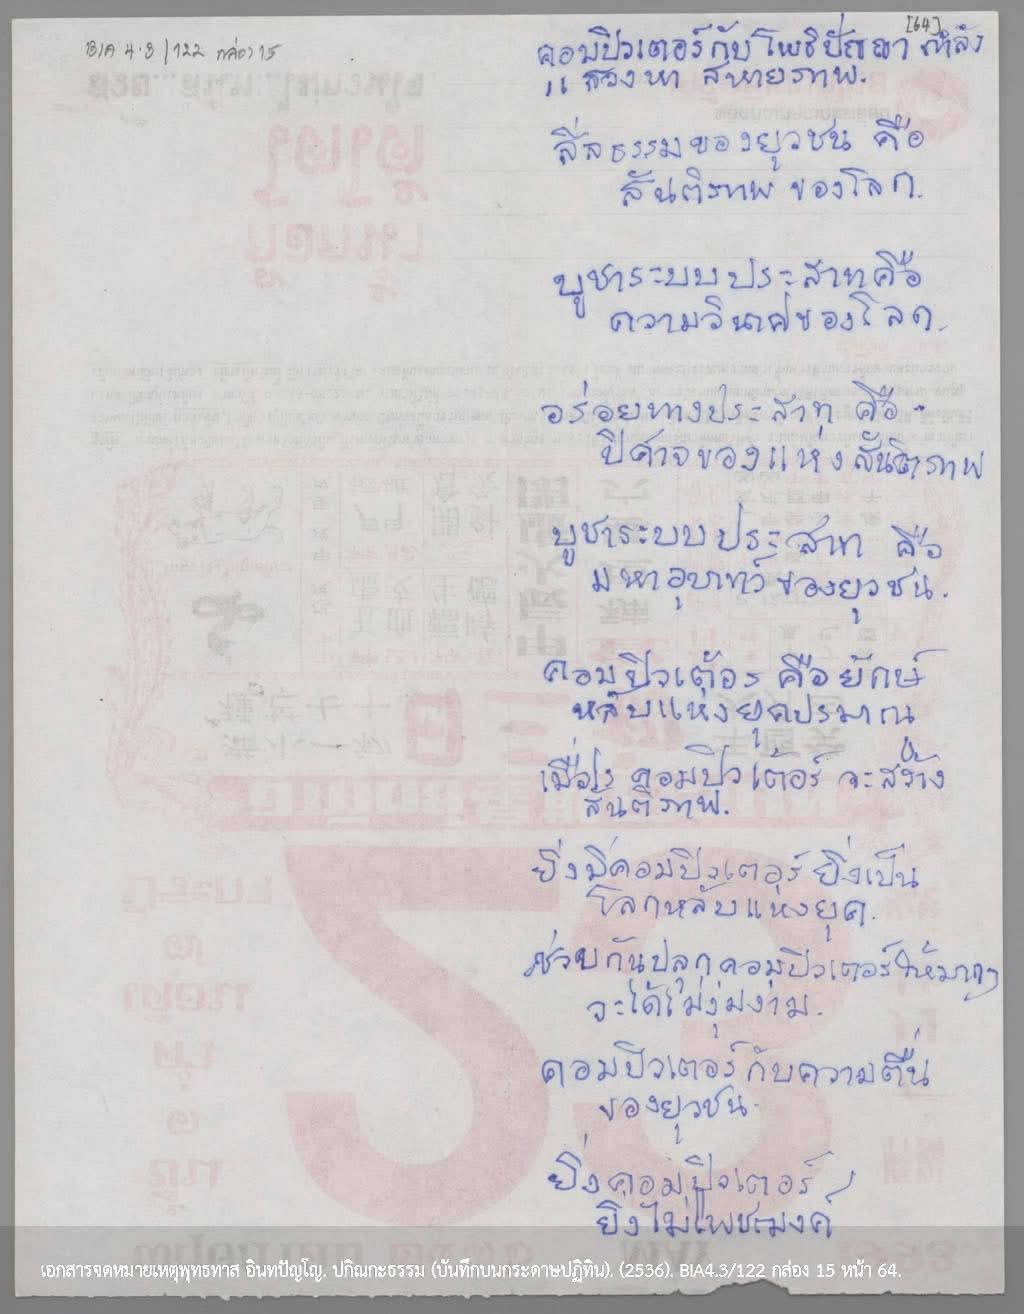 [64]
BIA 4.3/122 กล่อง 15
คอมปิวเตอร์กับโพธิปัญญา กำลัง
แสวงหา สหายภาพ.
ศีลธรรมของยุวชน คือ
สันติภาพ ของโลก.
บูชาระบบประสาทคือ
ความวินาศของโลก.
อร่อยทางประสาท คือ
ปีศาจของแห่งสันติภาพ
บูชาระบบประสาท คือ
มหาอุบาทว์ของยุวชน.
คอมปิวเต้อร คือยักษ์
หลับแห่งยุคปรมาณู
เมื่อไร คอมปิวเต้อร์ จะสร้าง
สันติภาพ.
ยิ่งมีคอมปิวเตอร์ ยิ่งเป็น
โลกหลับแห่งยุค.
ช่วยกันปลุกคอมปิวเตอร์ให้มากๆ
จะได้ไม่งุ่มง่าม.
คอมปิวเตอร์กับความตื่น
ของยุวชน.
ยิ่งคอมปิวเตอร์
ยิ่งไม่
เอกสารจดหมายเหตุพุทธทาส อินทปัญโญ. ปกิณกะธรรม (บันทึกบนกระดาษปฏิทิน). (2536). BIA4.3/122 กล่อง 15 หน้า 64.